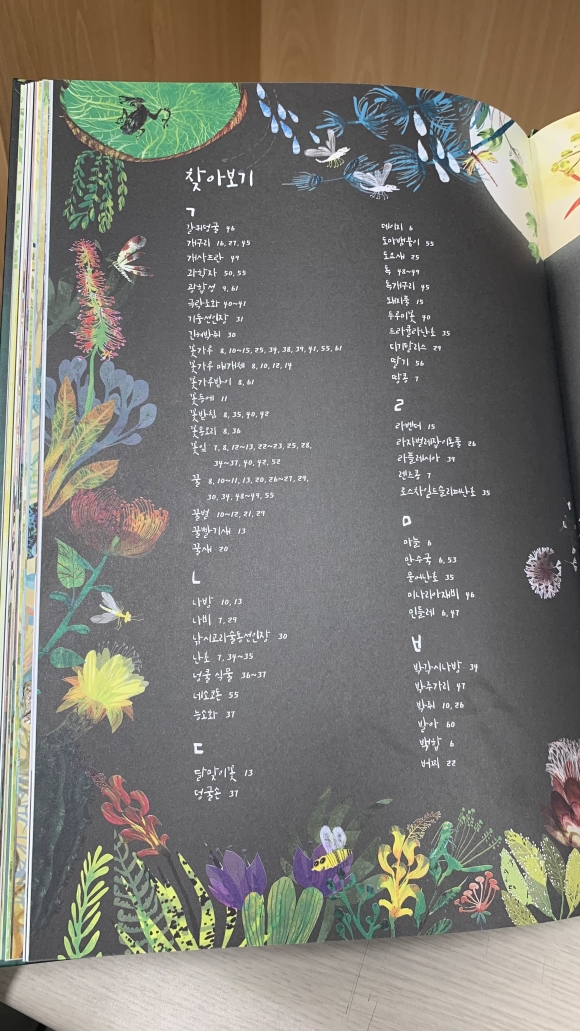 찾아보기
ㄱ
갈퀴덩굴 46
개구리 16, 27, 45
개사프란 49
과학자 50, 55
광합성 9, 61
극락조화 40~41
기둥선인장 31
긴혀박쥐 30
꽃가루 8, 10~15, 25, 34, 38, 39, 41, 55, 61
꽃가루 매개체 8, 10, 12, 14
꽃가루받이 8, 61
꽃등에 11
꽃받침 8, 35, 40, 42
꽃봉오리 8, 36
꽃잎 7, 8, 12~13, 22~23, 25, 28,
34~37, 40, 42, 52
꿀 8, 10~11, 13, 20, 26~27, 29,
30, 34, 48~49, 55
꿀벌 10~12, 21, 29
꿀빨기새 13
꿀새 20
ㄴ
나방 10, 13
나비 7, 29
낚시꼬리술통선인장 30
난초 7, 34~35
넝쿨 식물 36~37
네소코돈 55
능소화 37
ㄷ
달맞이꽃 13
덩굴손 37
데이지 6
도마뱀붙이 55
도요새 25
독 48~49
독개구리 45
돼지풀 15
두루미꽃 40
드라큘라난초 35
디기탈리스 29
딸기 56
땅콩 7
ㄹ
라벤더 15
라자벌레잡이통풀 26
라플레시아 39
렌트콩 7
로스차일드슬리퍼난초 35
ㅁ
마늘 6
만수국 6, 53
문어난초 35
미나리아재비 46
민들레 6, 47
ㅂ
박각시나방 34
박주가리 47
박쥐 10, 26
발아 60
백합 6
버찌 22